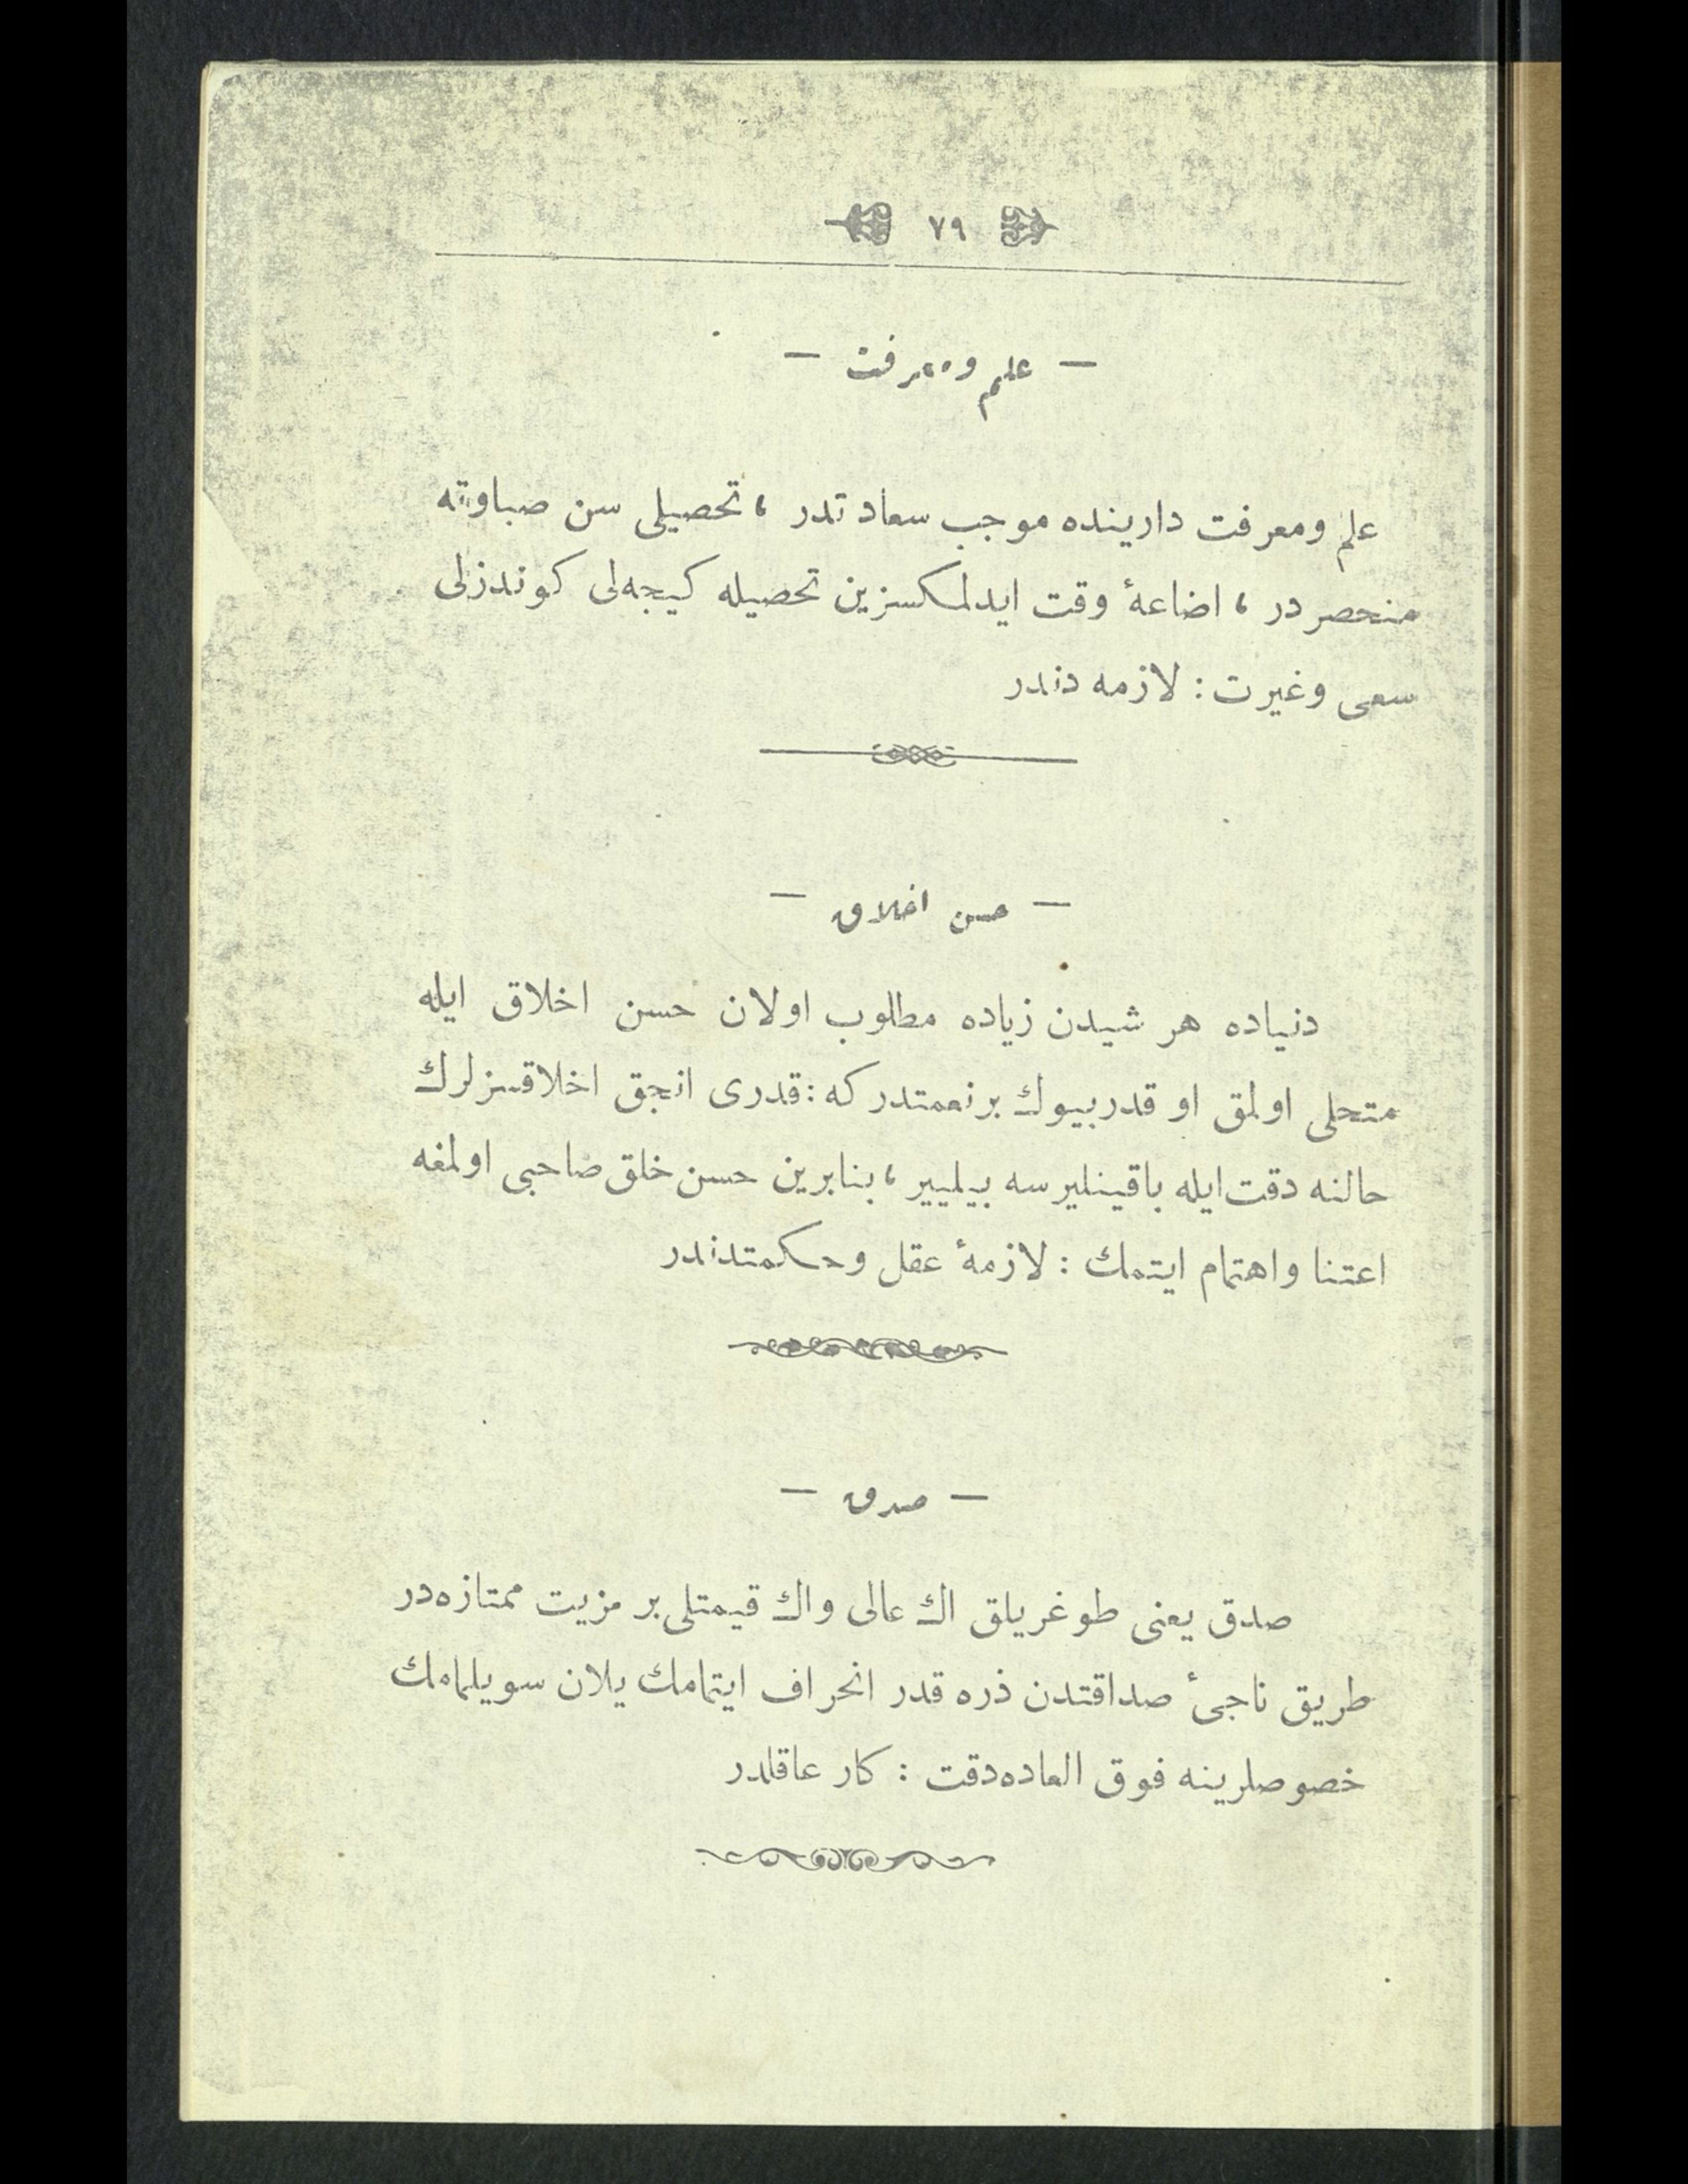 ٧٩
— علم ومعرفت —
علم ومعرفت دارینده موجب سعادتدر ، تحصیلی سن صباوته
منحصر در ، اضاعهٔ وقت ایدلمكسزین تحصیله كیجه‌لی كوندزلی
سعی وغیرت : لازمه دندر
— حسن اخلاق —
دنیاده هر شیدن زیاده مطلوب اولان حسن اخلاق ایله
متحلی اولمق او قدر بیوك بر نعمتدر كه : قدری انجق اخلاقسزلرك
حالنه دقت ایله باقینلیرسه بیلییر ، بنابرین حسن خلق صاحبی اولمغه
اعتنا واهتمام ایتمك : لازمهٔ عقل وحكمتدندر
— صدق —
صدق یعنی طوغریلق اك عالی واك قیمتلی بر مزیت ممتازه‌در
طریق ناجیٔ صداقتدن ذره قدر انحراف ایتمامك یلان سویلمامك
خصوصلرینه فوق العاده دقت : كار عاقلدر